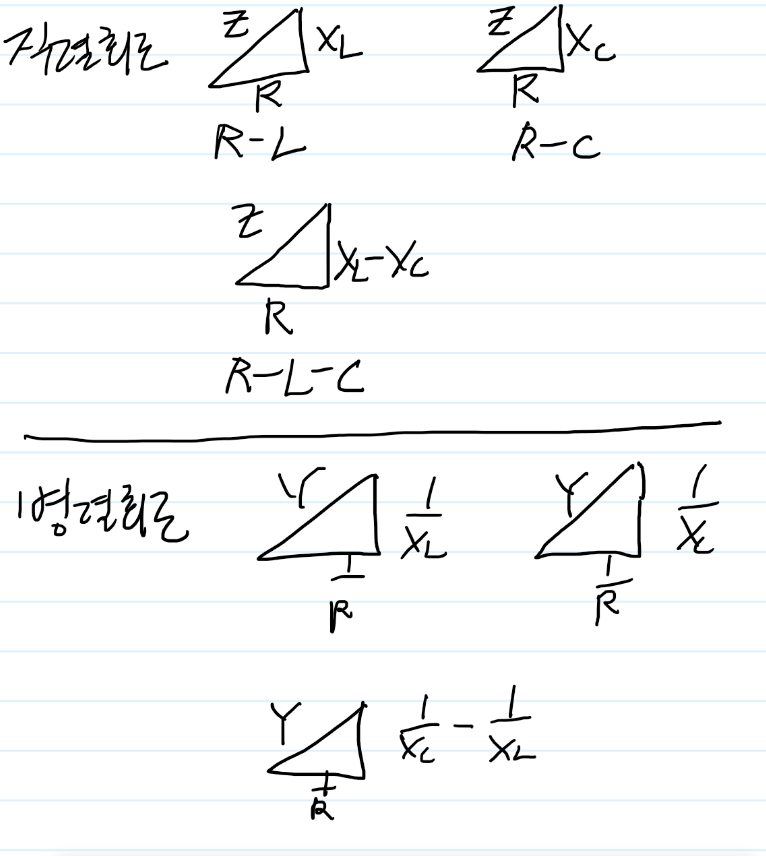 직렬회로 Z XL R Z XC R
R-L R-C
Z XL-XC
R
R-L-C
병렬회로 Y 1/XL 1/R Y 1/XC 1/R
Y 1/XC - 1/XL
1/R